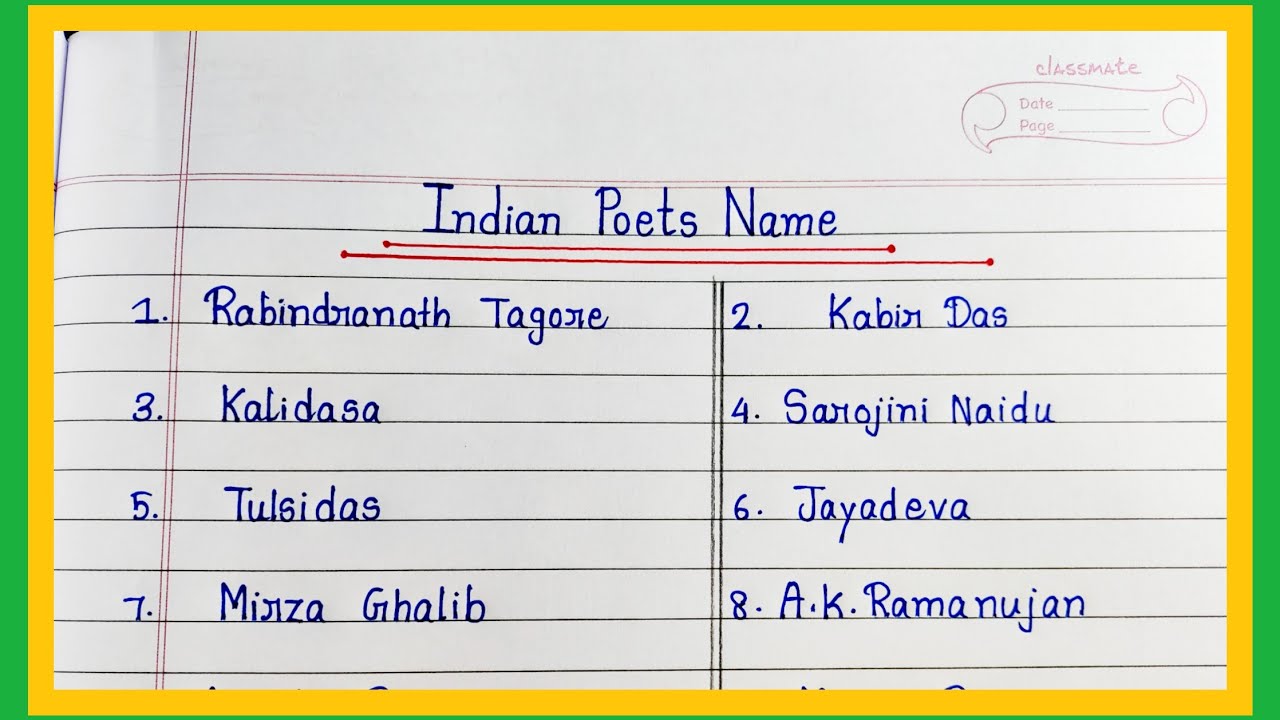 classmate
Date
Page
Indian Poets Name
1. Rabindranath Tagore
2. Kabir Das
3. Kalidasa
4. Sarojini Naidu
5. Tulsidas
6. Jayadeva
7. Mirza Ghalib
8. A.K. Ramanujan